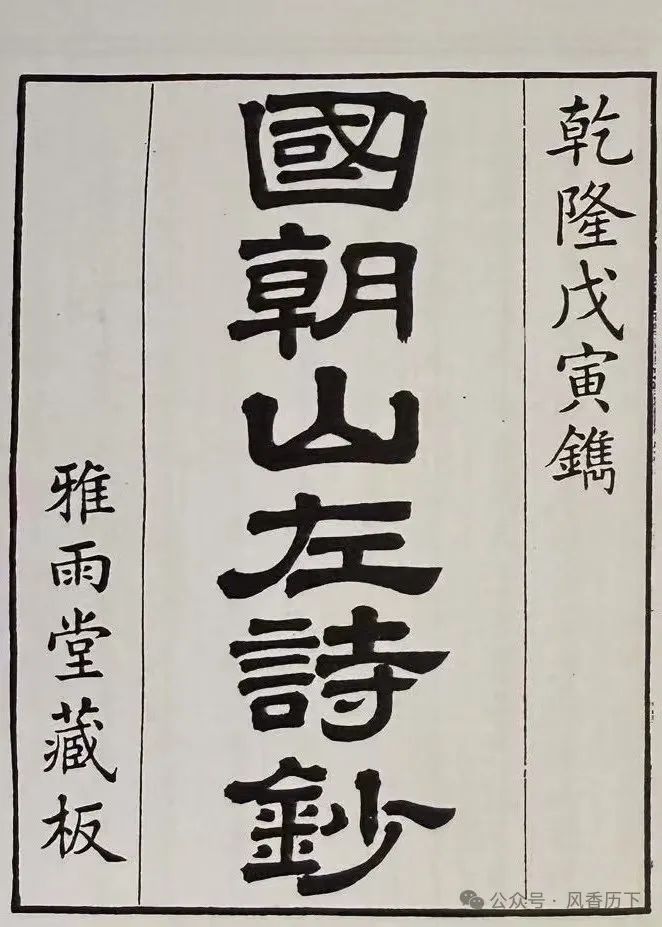 乾隆戊寅鐫
國朝山左詩鈔
雅雨堂藏板
公众号 · 风香历下